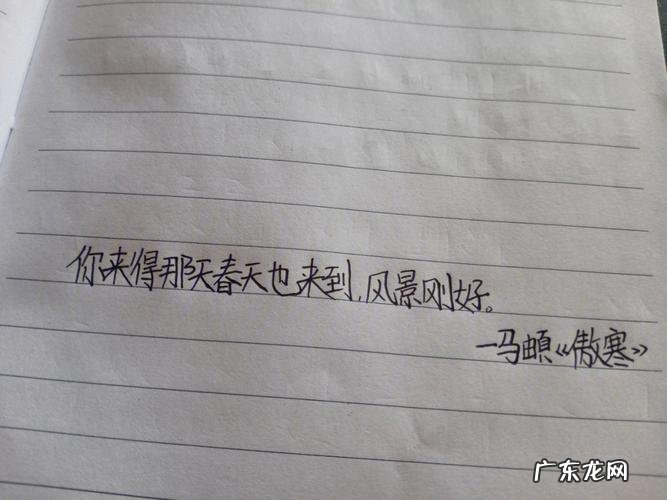 你来得那天春天也来到,风景刚好。
—马頔《傲寒》
广东龙网